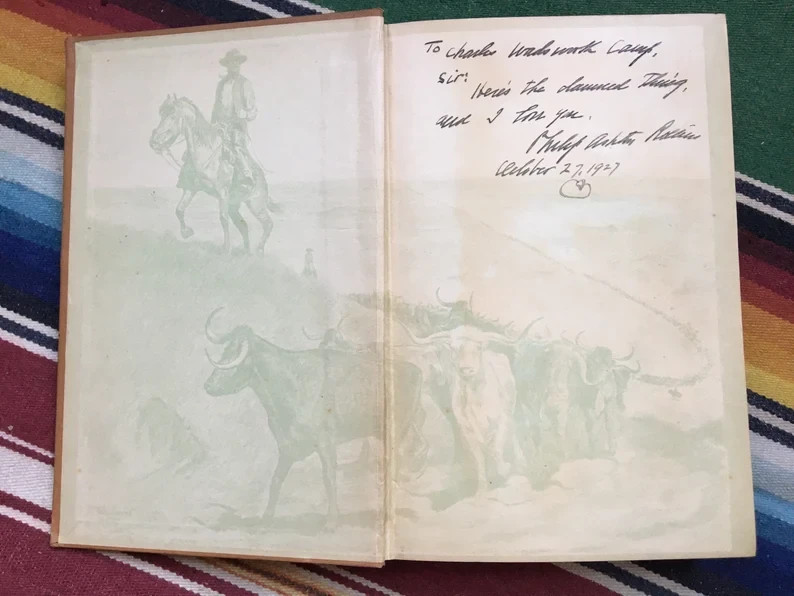 To Charles Wadsworth Camp,
Sir:
Here's the damned Thing,
and I love you.
Philip Ashton Rollins
October 27, 1927